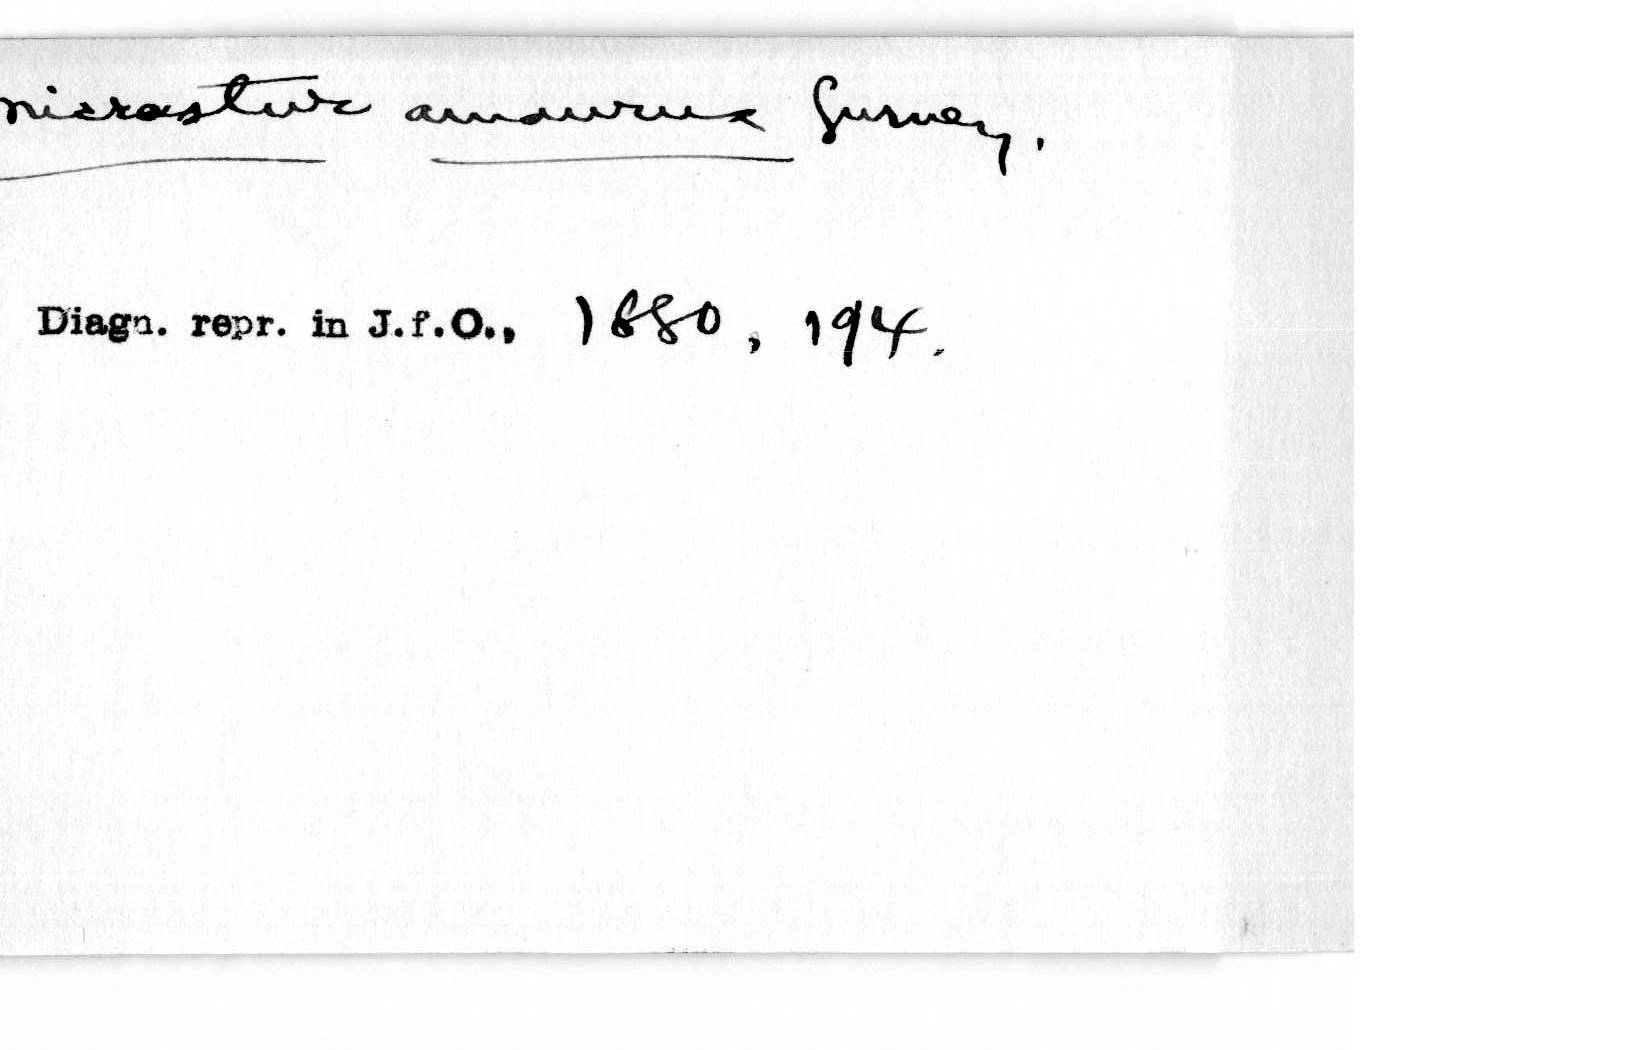 Micrastur amaurus Gurney.
Diagn. repr. in J.f.O., 1880, 194.